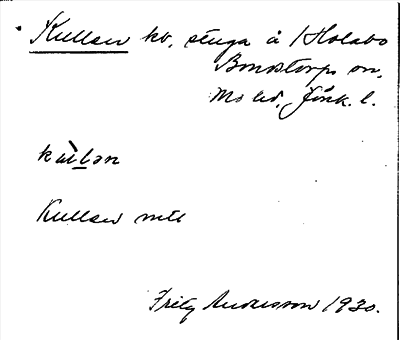 Kullen kv, stuga å 1 Holabo
Bondstorps sn,
Mo hd, Jönk. l.
kùlən
Kullen mtl
Fritz Andersson 1930.